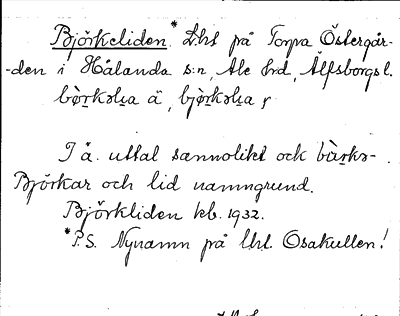 Björkeliden * Lht på Torpa Östergår-
-den i Hålanda s:n, Ale hd, Älfsborgs l.
bö̀rkəlıa ä, bjö̀rkəlıa y
I ä. uttal sannolikt ock bä̀rkə-
Björkar och lid namngrund.
Björkliden kb. 1932.
*P.S. Nynamn på lht. Osakullen!